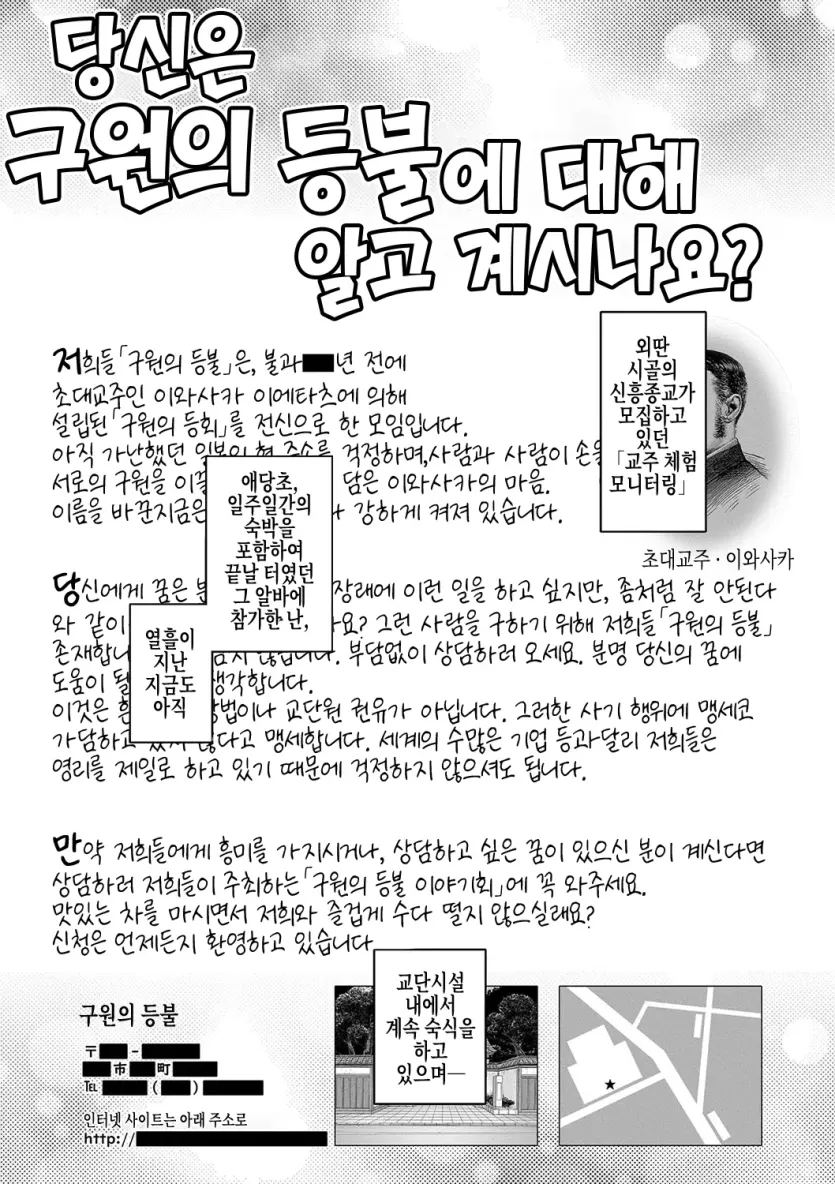 당신은
구원의 등불에 대해
알고 계시나요?
외딴
시골의
신흥종교가
모집하고
있던
「교주 체험
모니터링」
저희들「구원의 등불」은, 불과 년 전에
초대교주인 이와사카 이에타츠에 의해
설립된「구원의 등회」를 전신으로 한 모임입니다.
아직 가난했던 일본의 현 주소를 걱정하며,사람과 사람이 손을
서로의 구원을 담은 이와사카의 마음.
이름을 바꾼지금은 강하게 켜져 있습니다.
초대교주·이와사카
애당초,
일주일간의
숙박을
포함하여
끝날 터였던
그 알바에
참가한 난,
당신에게 꿈은 장래에 이런 일을 하고 싶지만, 좀처럼 잘 안된다
와 같이 그런 사람을 구하기 위해 저희들「구원의 등불」
부담없이 상담하러 오세요. 분명 당신의 꿈에
도움이 될 생각합니다.
이것은 교단원 권유가 아닙니다. 그러한 사기 행위에 맹세코
가담하고 있지 않다고 맹세합니다. 세계의 수많은 기업 등과달리 저희들은
영리를 제일로 하고 있기 때문에 걱정하지 않으셔도 됩니다.
열흘이
지난
지금도
아직
만약 저희들에게 흥미를 가지시거나, 상담하고 싶은 꿈이 있으신 분이 계신다면
상담하러 저희들이 주최하는「구원의 등불 이야기회」에 꼭 와주세요.
맛있는 차를 마시면서 저희와 즐겁게 수다 떨지 않으실래요?
신청은 언제든지 환영하고 있습니다
교단시설
내에서
계속 숙식을
하고
있으며―
구원의 등불
〒 -
市 町
℡ ( )
인터넷 사이트는 아래 주소로
http://